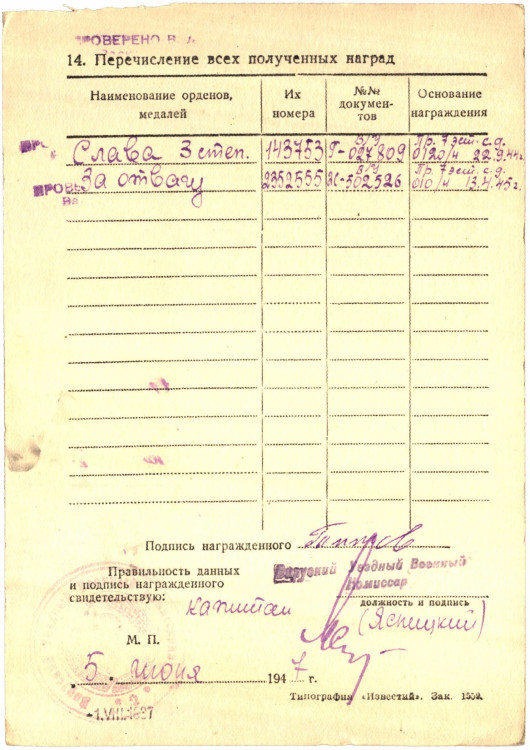 ПРОВЕРЕНО В.
14. Перечисление всех полученных наград
Наименование орденов, медалей | Их номера | №№ документов | Основание награждения
Слава 3 степ. | 143753 | В/У Г-027809 | Пр. 7 эст. с.д. 0120/н 22.9.44г.
За отвагу | 2352555 | В/У Ж-502526 | Пр. 7 эст. с.д. 010/н 13.4.45г.
Подпись награжденного
Правильность данных
и подпись награжденного
свидетельствую: капитан
Валгский Уездный Военный
Комиссар
должность и подпись
(Ясницкий)
М. П.
5 июня 1947 г.
Типография «Известий». Зак. 1559.
-1.VIII.1987